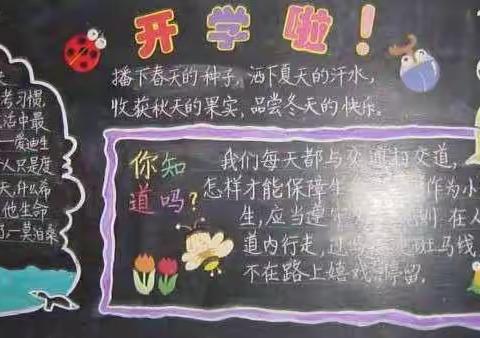 开学啦!
播下春天的种子,洒下夏天的汗水,
收获秋天的果实,品尝冬天的快乐。
考习惯,
活中最
——爱迪生
人只是度
天,什么希
他生命
了—莫泊桑
你知
道吗?
我们每天都与交通打交道,
怎样才能保障生 作为小
生,应当遵 则.在人
道内行走,过 斑马线
不在路上嬉戏 停留.